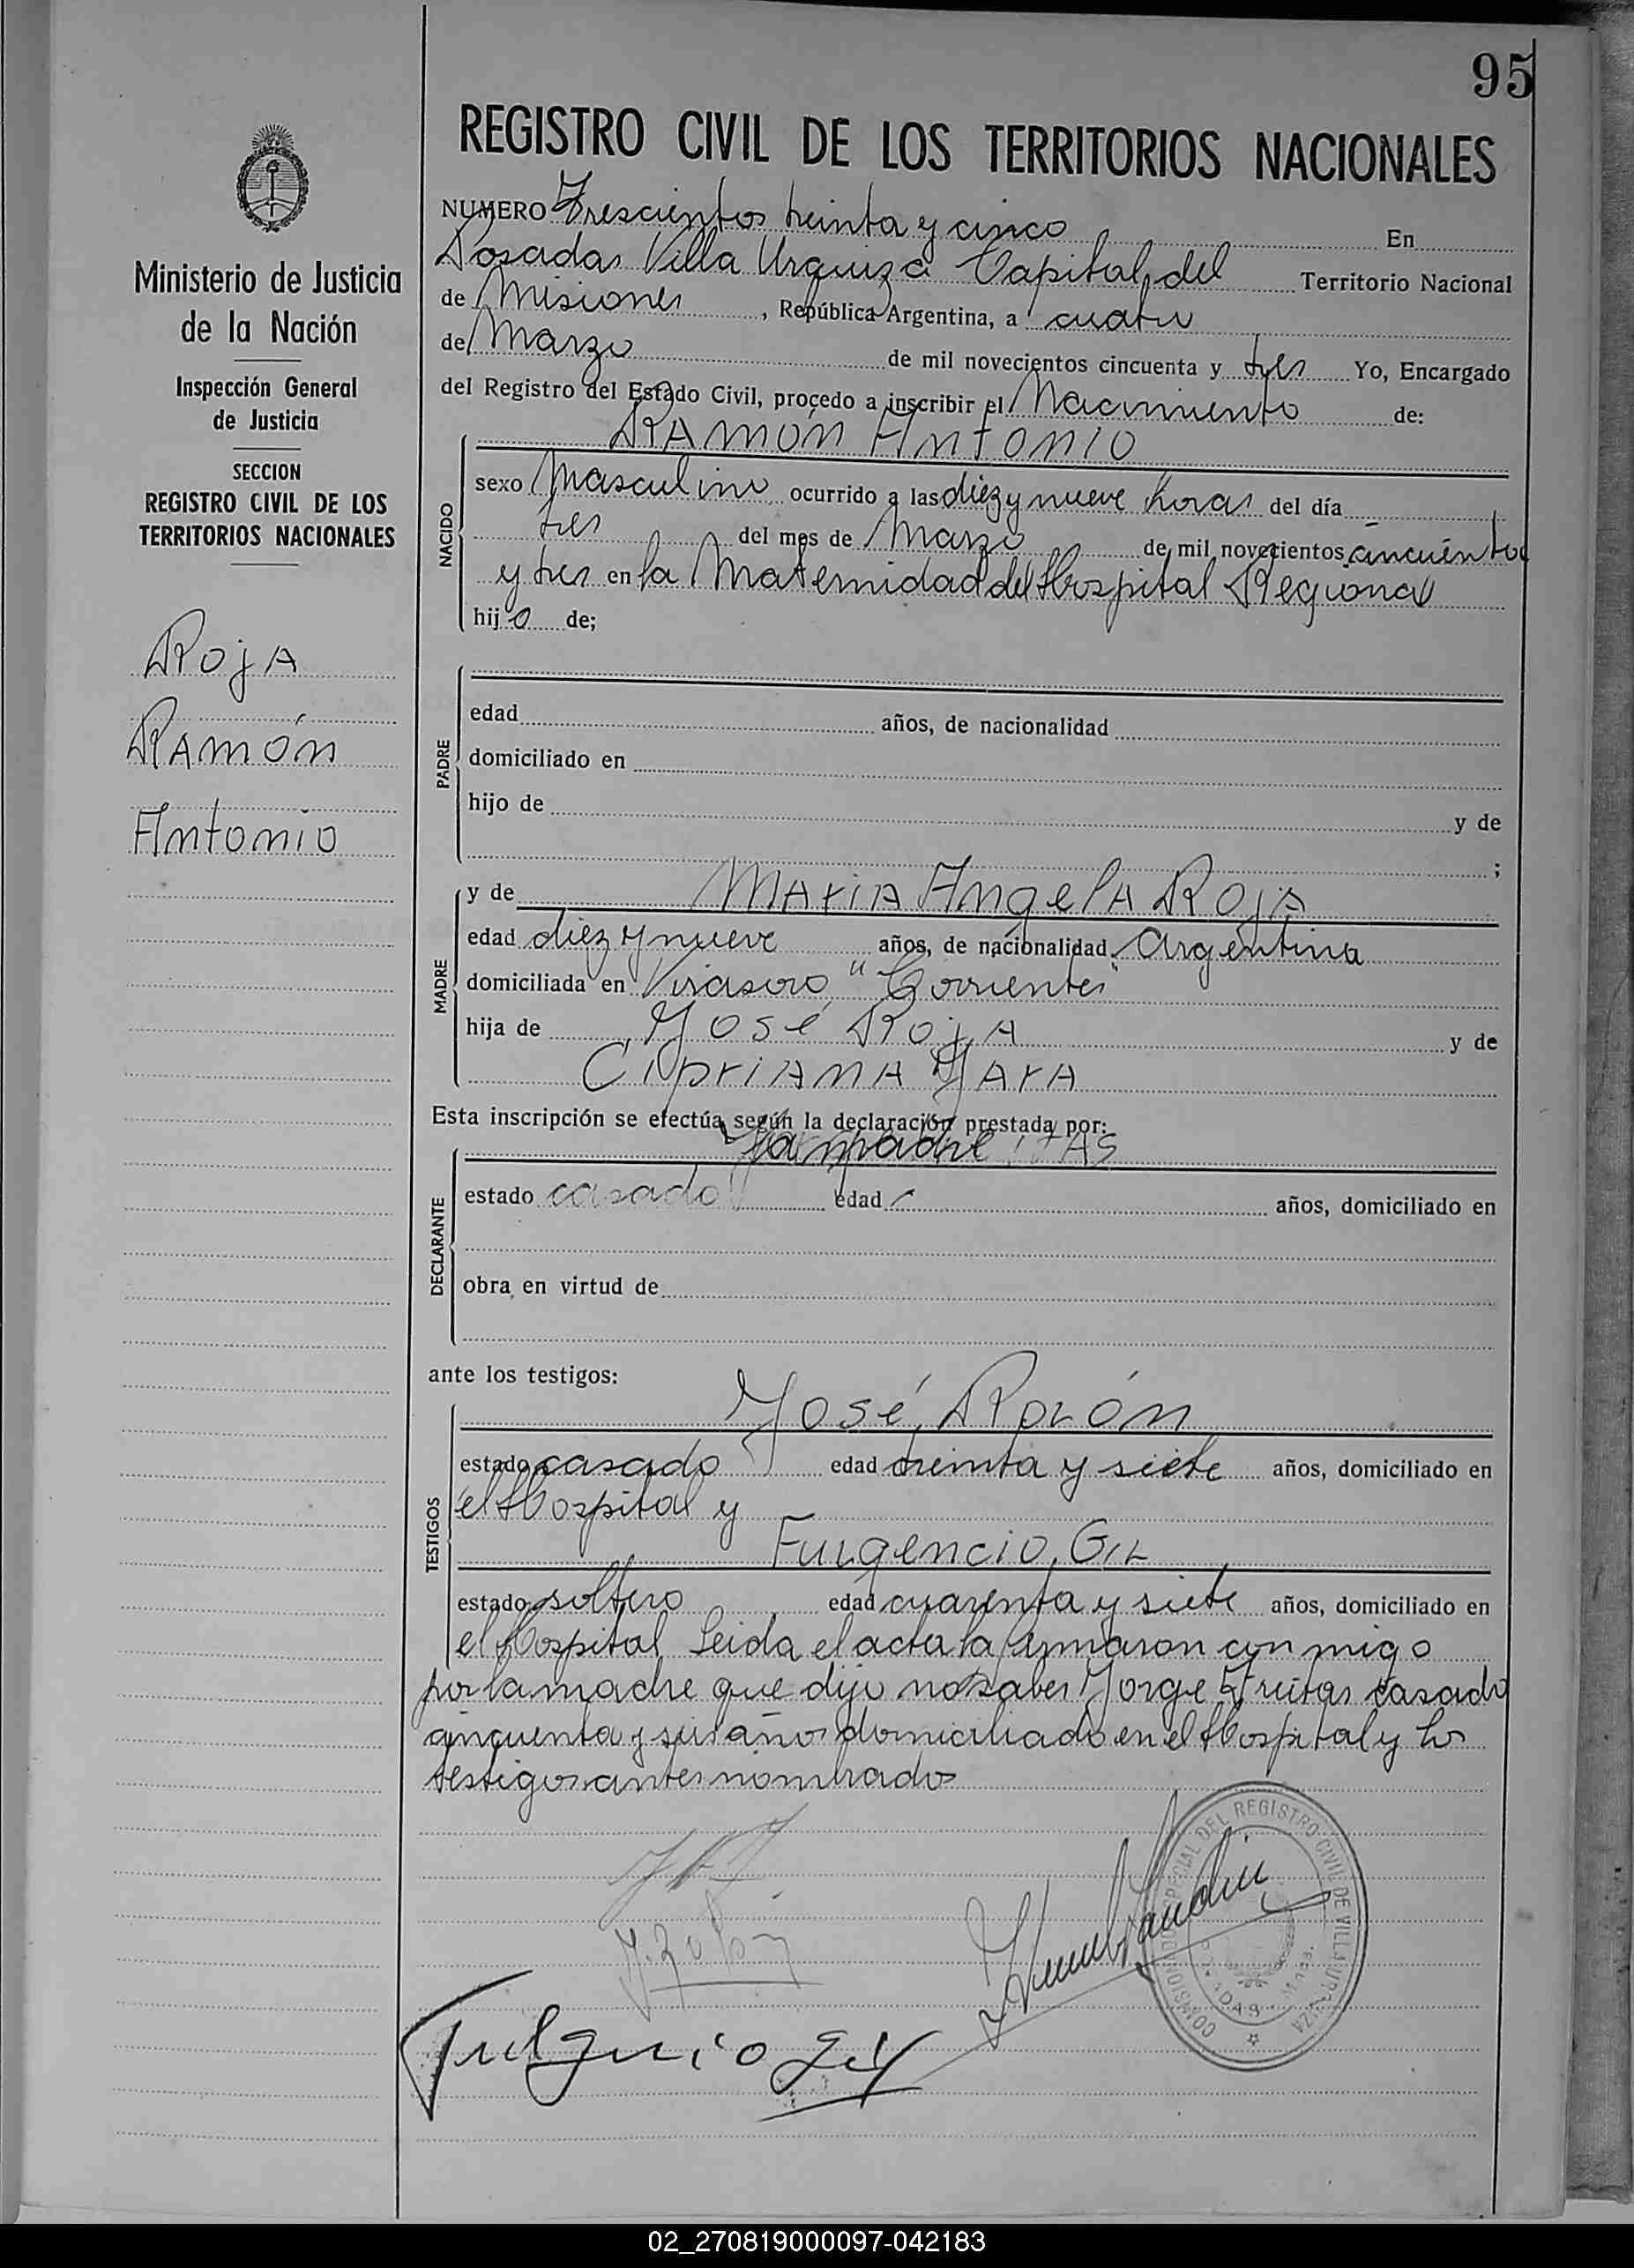 95
REGISTRO CIVIL DE LOS TERRITORIOS NACIONALES
Ministerio de Justicia
de la Nación
Inspección General
de Justicia
SECCION
REGISTRO CIVIL DE LOS
TERRITORIOS NACIONALES
Roja
Ramón
Antonio
NUMERO Trescientos treinta y cinco En
Posadas Villa Urquiza Capital del Territorio Nacional
de Misiones, República Argentina, a cuatro
de Marzo de mil novecientos cincuenta y tres Yo, Encargado
del Registro del Estado Civil, procedo a inscribir el Nacimiento de:
RAMÓN ANTONIO
NACIDO
sexo Masculino ocurrido a las diez y nueve horas del día
tres del mes de Marzo de mil novecientos cincuenta
y tres en la Maternidad del Hospital Regional
hijo de;
PADRE
edad años, de nacionalidad
domiciliado en
hijo de y de
;
MADRE
y de Maria Angela Roja
edad diez y nueve años, de nacionalidad Argentina
domiciliada en Virasoro "Corrientes"
hija de José Roja y de
Cipriana Jara
Esta inscripción se efectúa según la declaración prestada por:
la madre
DECLARANTE
estado casado edad años, domiciliado en
obra en virtud de
ante los testigos:
TESTIGOS
José Rolón
estado casado edad treinta y siete años, domiciliado en
el Hospital y
Fulgencio Gil
estado soltero edad cuarenta y siete años, domiciliado en
el Hospital Leida el acta la firmaron con migo
por la madre que dijo no saber Jorge Freitas casado
cincuenta y seis años domiciliado en el Hospital y los
testigos antes nombrados
COMISIONADO ESPECIAL DEL REGISTRO CIVIL DE VILLA URQUIZA
J. Rolón
Fulgencio Gil
02_270819000097-042183